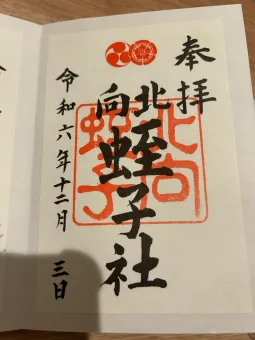 奉拝
北向
蛭子社
北向
蛭子
令和六年十二月三日